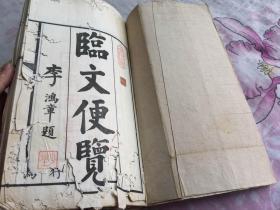 臨文便覽
李鴻章題